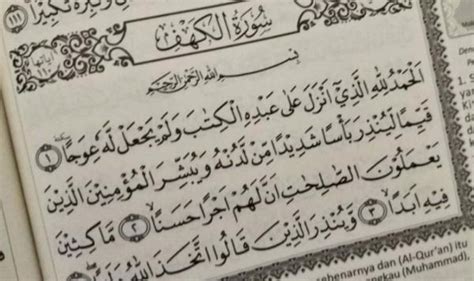 وَكَبِّرْهُ تَكْبِيْرًا ١١١
سُوْرَةُ الْكَهْفِ
اٰياتها ١١٠
بِسْمِ اللّٰهِ الرَّحْمٰنِ الرَّحِيْمِ
اَلْحَمْدُ لِلّٰهِ الَّذِيْٓ اَنْزَلَ عَلٰى عَبْدِهِ الْكِتٰبَ وَلَمْ يَجْعَلْ لَّهٗ عِوَجًا ١
قَيِّمًا لِّيُنْذِرَ بَأْسًا شَدِيْدًا مِّنْ لَّدُنْهُ وَيُبَشِّرَ الْمُؤْمِنِيْنَ الَّذِيْنَ
يَعْمَلُوْنَ الصّٰلِحٰتِ اَنَّ لَهُمْ اَجْرًا حَسَنًاۙ ٢ مَّاكِثِيْنَ
فِيْهِ اَبَدًاۙ ٣ وَّيُنْذِرَ الَّذِيْنَ قَالُوا اتَّخَذَ اللّٰهُ وَلَدًا
ebenarnya dan (Al-Qur'an) itu
ngkau (Muhammad),